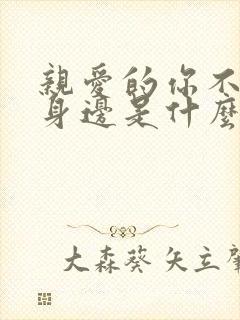 親愛的你不
身邊是什麼
大森葵 矢立肇